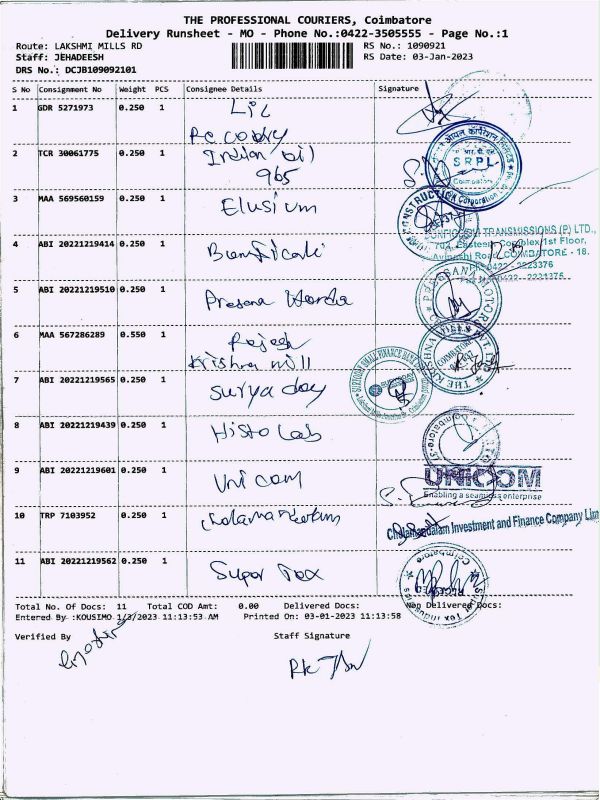 THE PROFESSIONAL COURIERS, Coimbatore
Delivery Runsheet - MO - Phone No.:0422-3505555 - Page No.:1
Route: LAKSHMI MILLS RD RS No.: 1090921
Staff: JEHADEESH RS Date: 03-Jan-2023
DRS No.: DCJB109092101
S No Consignment No Weight PCS Consignee Details Signature
1 GDR 5271973 0.250 1 Lic
Recovery
2 TCR 30061775 0.250 1 Indian oil
965
S R P L
Coimbatore
3 MAA 569560159 0.250 1 Elusium
TRANSMISSIONS (P) LTD.,
704, Eastern Complex, 1st Floor,
Avinashi Road, COIMBATORE - 18.
4 ABI 20221219414 0.250 1
5 ABI 20221219510 0.250 1 Prasana Honda
6 MAA 567286289 0.550 1 Rajesh
Krishna mill
THE KRISHNA MILLS PVT. LTD.
COIMBATORE
7 ABI 20221219565 0.250 1 Surya day
SURYODAY SMALL FINANCE BANK
8 ABI 20221219439 0.250 1 Histo Lab
Coimbatore
9 ABI 20221219601 0.250 1 Uni com
UNICOM
Enabling a seamless enterprise
10 TRP 7103952 0.250 1
Cholamandalam Investment and Finance Company Lim
11 ABI 20221219562 0.250 1 Super Tax
Total No. Of Docs: 11 Total COD Amt: 0.00 Delivered Docs: Non Delivered Docs:
Entered By :KOUSIMO 1/3/2023 11:13:53 AM Printed On: 03-01-2023 11:13:58
Verified By Staff Signature